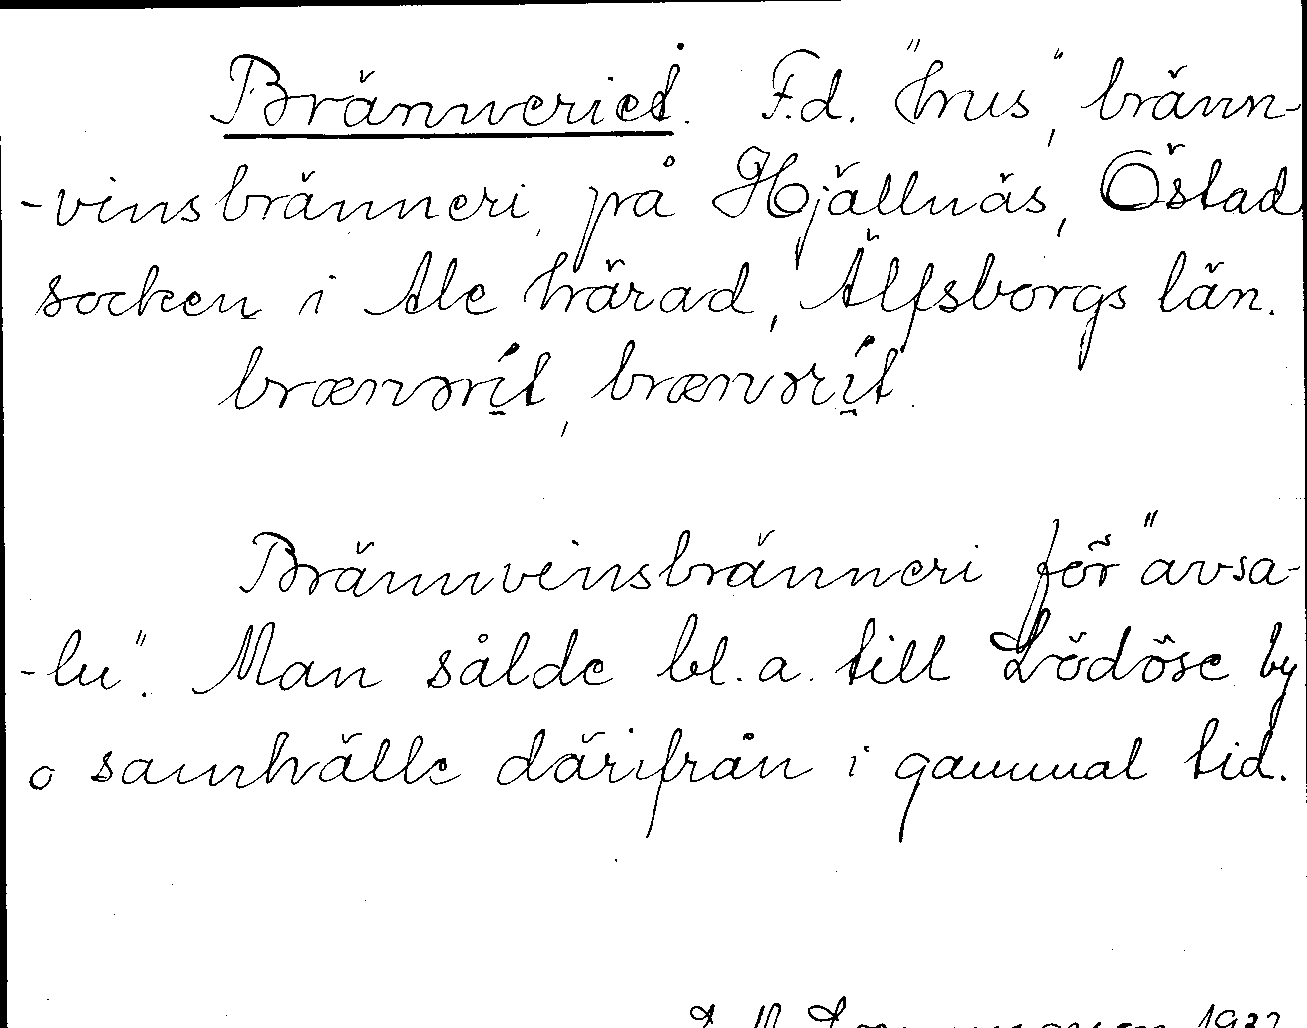 Bränneriet. F.d. "hus", bränn-
-vinsbränneri, på Hjällnäs, Östad
socken i Ale härad, Älfsborgs län.
brænərít, brænərít.
Brännvinsbränneri för "avsa-
-lu". Man sålde bl.a. till Lödöse by
o samhälle därifrån i gammal tid.
1932